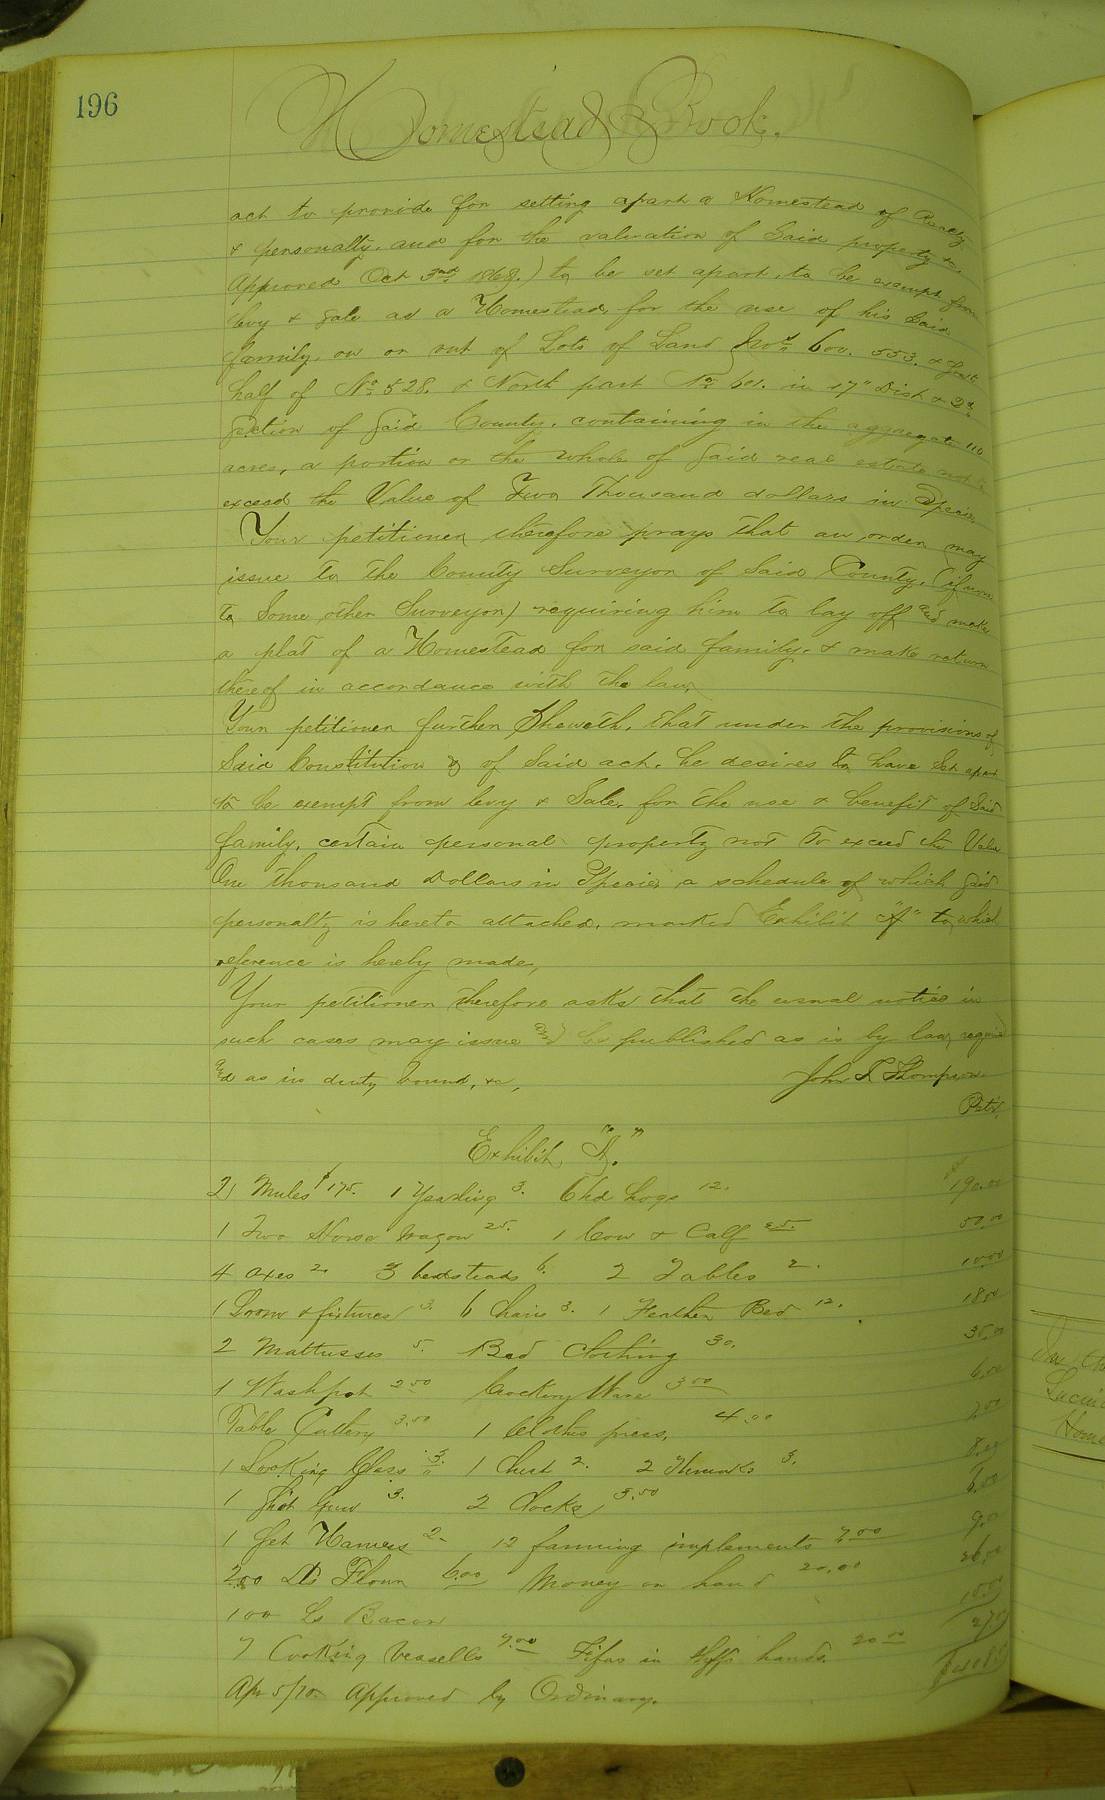 196
Homestead Book.
act to provide for setting apart a Homestead of Realty
& personalty, and for the valuation of Said property &c.
Approved Oct 3rd 1868.) to be set apart, to be exempt from
levy & Sale as a Homestead, for the use of his Said
family, on or out of Lots of Land Nos 600. 553. &
half of No 528. & North part No 601. in 17" Dist & 2d
Section of Said County, containing in the aggregate 110
acres, a portion or the whole of Said real estate not to
exceed the Value of Two Thousand dollars in Specie,
Your petitioner therefore prays that an order may
issue to the County Surveyor of Said County, (if none
to Some other Surveyor) requiring him to lay off and make
a plat of a Homestead for said family, & make return
thereof in accordance with the law,
Your petitioner further Sheweth, that under the provisions of
Said Constitution & of Said act, he desires to have Set apart
to be exempt from levy & Sale, for the use & benefit of Said
family, certain personal property not to exceed the Value
One thousand Dollars in Specie, a schedule of which Said
personalty is hereto attached, marked Exhibit "A" to which
reference is hereby made,
Your petitioner therefore asks that the usual notice in
such cases may issue and be published as is by law required
and as in duty bound, &c, John S Thompson
Petr.
Exhibit, "A."
2 Mules $175. 1 Yearling 3. 6 hd hogs 12. 190.00
1 Two Horse Wagon 25. 1 Cow & Calf 25. 50.00
4 axes 2. 3 bedsteads 6. 2 Tables 2. 10.00
1 Loom & fixtures 3. 6 Chairs 3. 1 Feather Bed 12. 18.00
2 Mattusses 5. Bed Clothing 30. 35.00
1 Washpot 2.50 Crockery Ware 3.00
Table Cutlery 3.50 1 Clothes press, 4.00
1 Looking Glass 1 Chest 2. 2 3. 8.00
1 Shot Gun 3. 2 Clocks 3.50
1 Set Harness 2. 12 farming implements 7.00 9.00
200 Lbs Flour 6.00 Money on hand 20.00 26.00
100 Lbs Bacon 10.00
7 Cooking Vessells 7.00 Fifas in Shffs hands. 20.00 27.00
Apr 5/70. Approved by Ordinary.